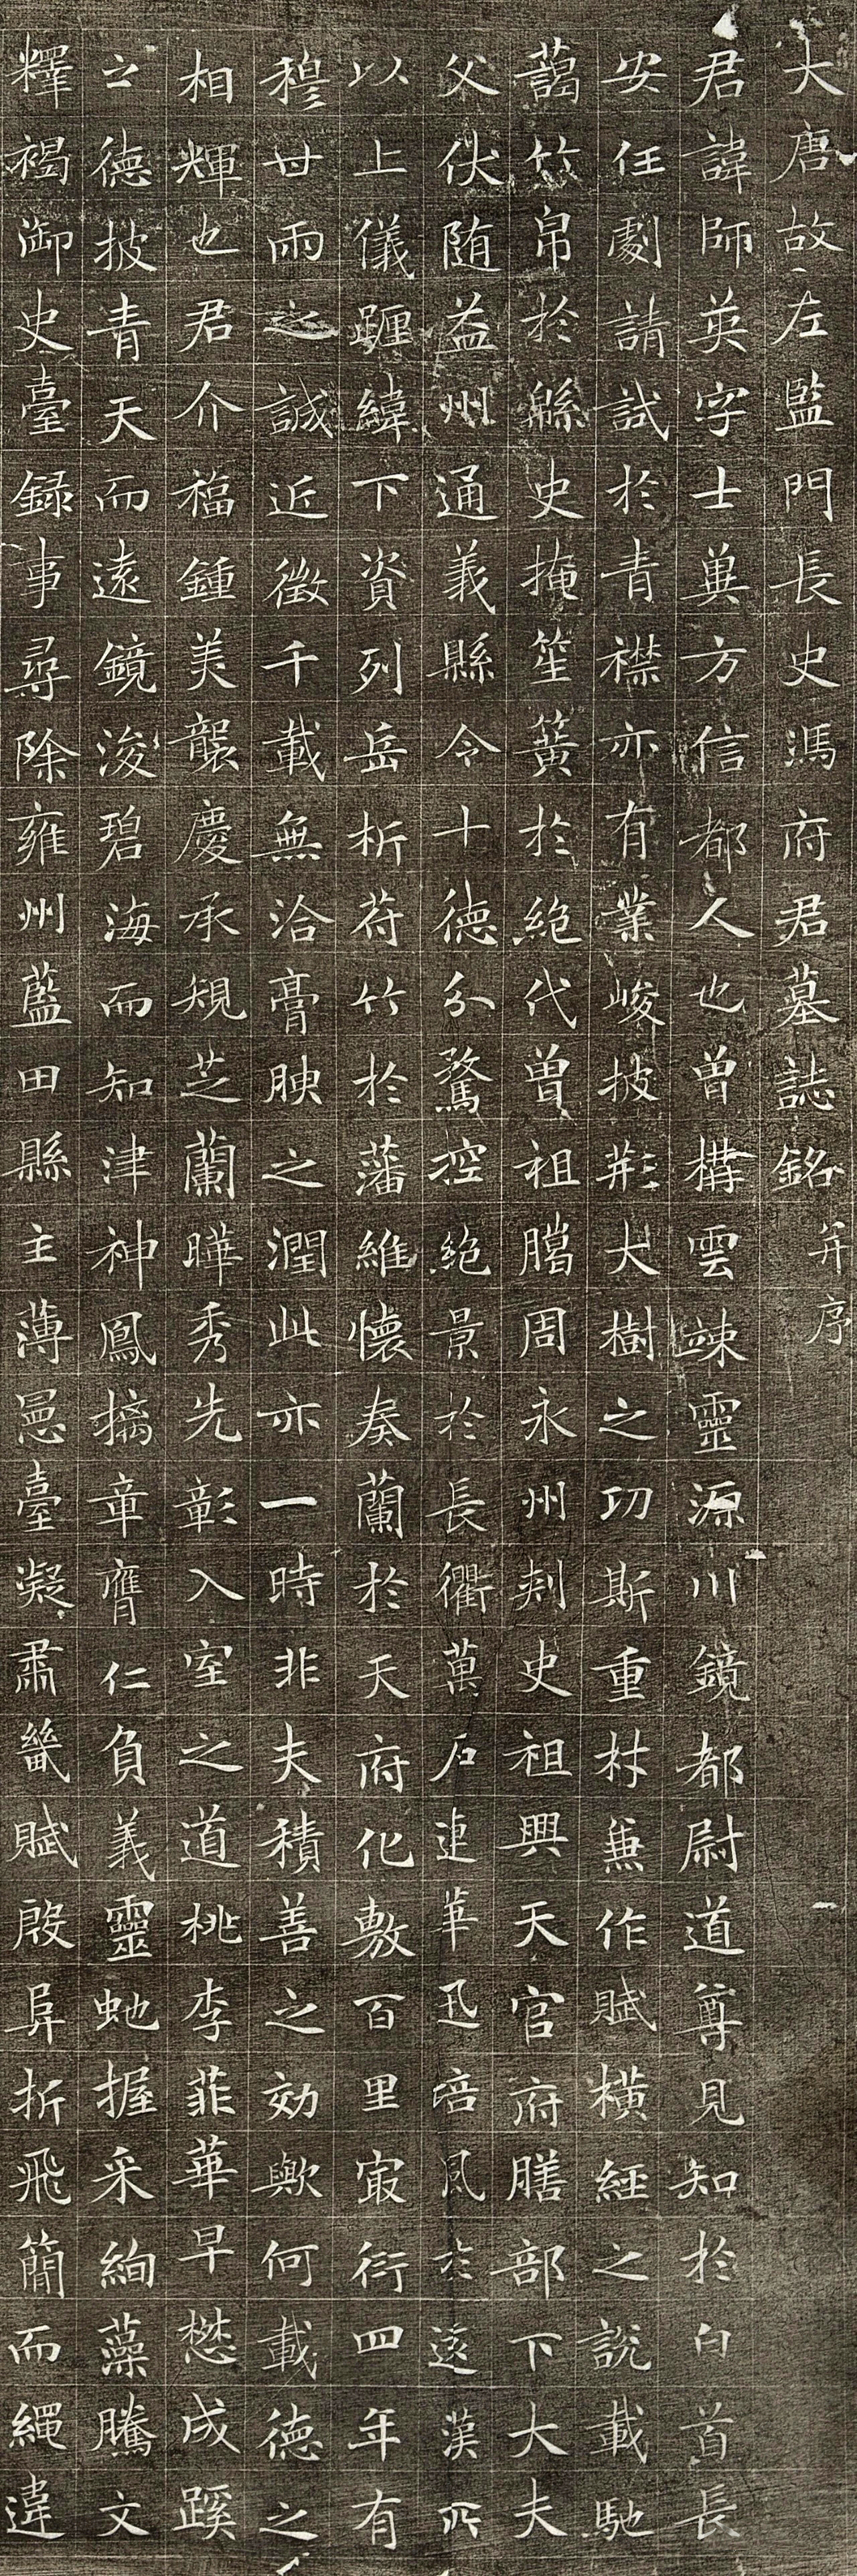 大唐故左監門長史馮府君墓誌銘 并序
君諱師英字士巽方信都人也曾構雲竦靈源川鏡都尉道尊見知於白首長
安任劇請試於青襟亦有業峻披荆大樹之功斯重材兼作賦橫經之說載馳
藹竹帛於緜史掩笙簧於絕代曾祖騰周永州刾史祖興天官府膳部下大夫
父伏随益州通義縣令十德分騖控絕景於長衢萬石連華迅培風於遠漢所
以上儀躔緯下資列岳析苻竹於藩維懷奏蘭於天府化敷百里㝡衍四年有
穆丗雨之誠近徵千載無洽膏腴之潤此亦一時非夫積善之効歟何載德之
相輝也君介福鍾美襲慶承規芝蘭曄秀先彰入室之道桃李菲華早懋成蹊
之德披青天而遠鏡浚碧海而知津神鳳摛章膺仁負義靈虵握采絢藻騰文
釋褐御史臺錄事尋除雍州藍田縣主薄臺凝肅畿賦殷阜折飛簡而繩違